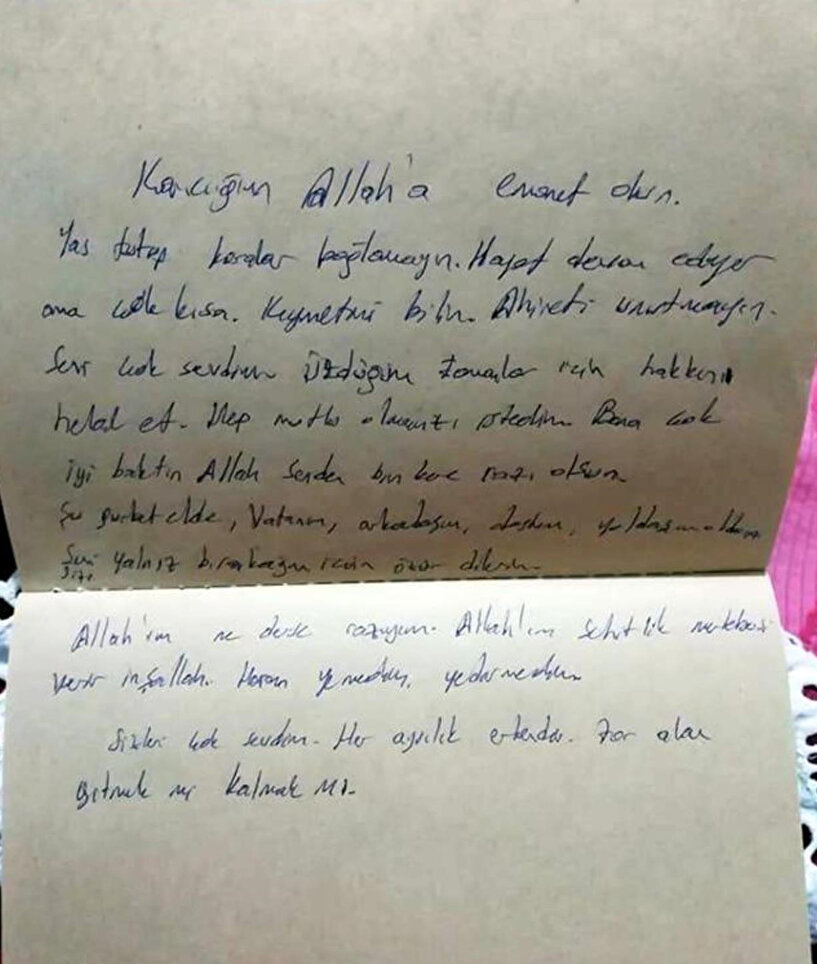 Karıcığım Allah'a emanet olun.
Yas tutup karalar bağlamayın. Hayat devam ediyor
ama çok kısa. Kıymetini bilin. Ahireti unutmayın.
Seni çok sevdim Üzdüğüm zamanlar için hakkını
helal et. Hep mutlu olmanızı istedim. Bana çok
iyi baktın Allah senden bin kere razı olsun.
Şu gurbet elde, Vatanım, arkadaşım, dostum, yoldaşım oldun
Seni Sizi yalnız bıraktığım için özür dilerim.
Allah'ım ne derse razıyım. Allah'ım şehitlik mertebesi
verir inşallah. Haram yemedim, yedirmedim.
Sizleri çok sevdim. Her ayrılık erkendir. Zor olan
gitmek mi kalmak mı.